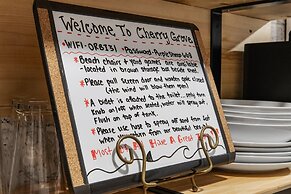 Welcome To Cherry Grove
*WIFI-ORBI31 - Password-Purple
*Beach chairs & yard games are available
-located in brown storage box beside shed
*Please pull screen door and wooden gate closed
(the wind will blow them open)
*A bidet is attached to the toilet... only turn
knob on/off when seated, water will spray out.
Flush on top of tank.
*Please use hose to spray off sand from feet
when you return from our beautiful beach
Most Have A Great